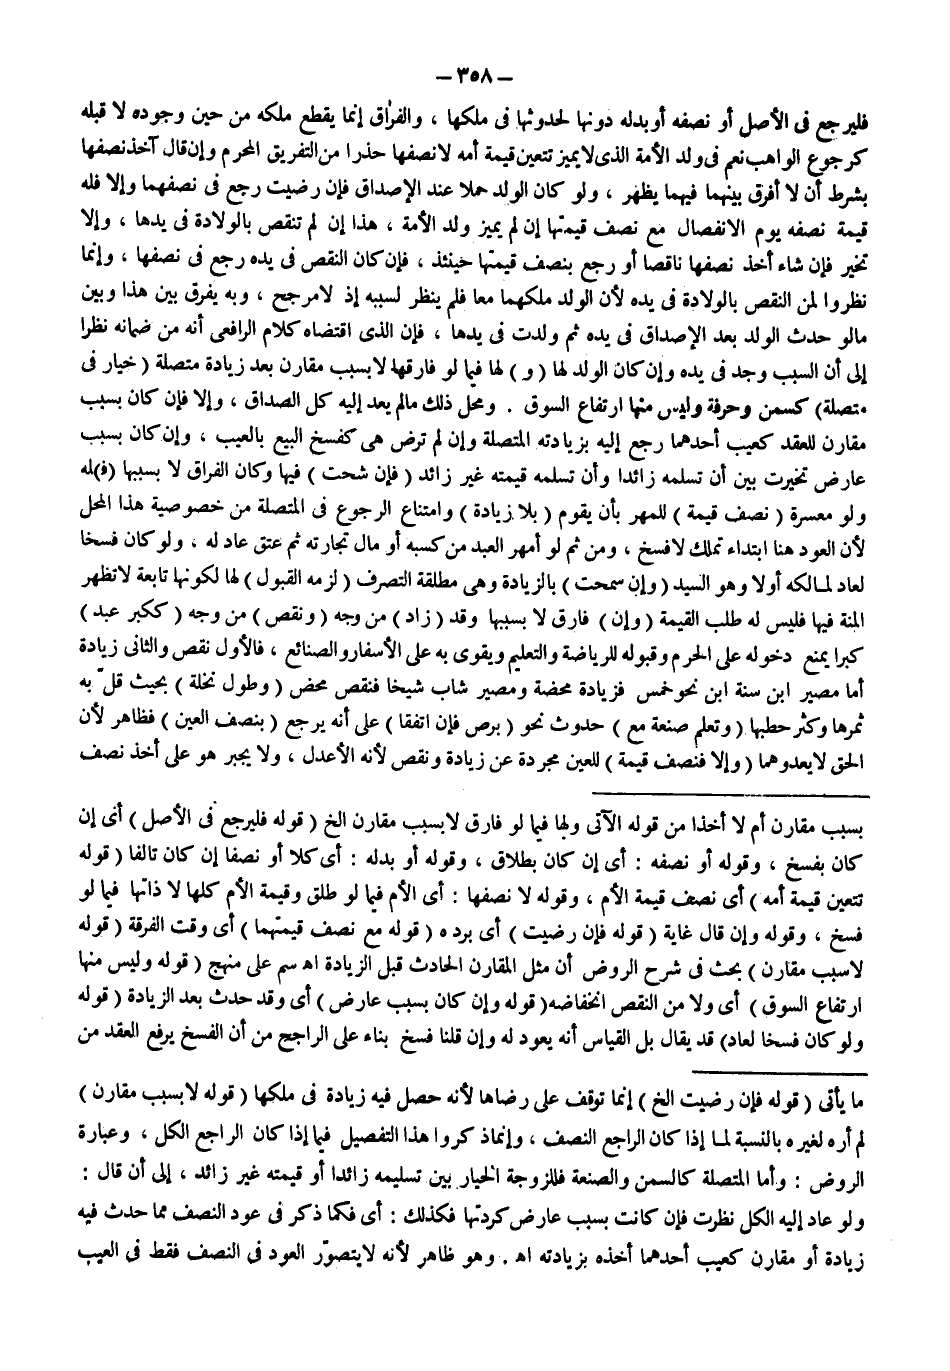 – ٣٥٨ –
فليرجع فى الأصل أو نصفه أو بدله دونها لحدوثها فى ملكها ، والفراق إنما يقطع ملكه من حين وجوده لا قبله
كرجوع الواهب نعم فى ولد الأمة الذى لا يميز تتعين قيمة أمه لا نصفها حذرا من التفريق المحرم وإن قال آخذ نصفها
بشرط أن لا أفرق بينهما فيهما يظهر ، ولو كان الولد حملا عند الإصداق فإن رضيت رجع فى نصفهما وإلا فله
قيمة نصفه يوم الانفصال مع نصف قيمتها إن لم يميز ولد الأمة ، هذا إن لم تنقص بالولادة فى يدها ، وإلا
تخير فإن شاء أخذ نصفها ناقصا أو رجع بنصف قيمتها حينئذ ، فإن كان النقص فى يده رجع فى نصفها ، وإنما
نظروا لمن النقص بالولادة فى يده لأن الولد ملكهما معا فلم ينظر لسببه إذ لامرجح ، وبه يفرق بين هذا وبين
مالو حدث الولد بعد الإصداق فى يده ثم ولدت فى يدها ، فإن الذى اقتضاه كلام الرافعى أنه من ضمانه نظرا
إلى أن السبب وجد فى يده وإن كان الولد لها ( و ) لها فيما لو فارقها لا بسبب مقارن بعد زيادة متصلة ( خيار فى
متصلة) كسمن وحرفة وليس منها ارتفاع السوق . ومحل ذلك مالم يعد إليه كل الصداق ، وإلا فإن كان بسبب
مقارن للعقد كعيب أحدهما رجع إليه بزيادته المتصلة وإن لم ترض هى كفسخ البيع بالعيب ، وإن كان بسبب
عارض تخيرت بين أن تسلمه زائدا وأن تسلمه قيمته غير زائد ( فإن شحت ) فيها وكان الفراق لا بسببها (ف)له
ولو معسرة ( نصف قيمة ) للمهر بأن يقوم ( بلا زيادة ) وامتناع الرجوع فى المتصلة من خصوصية هذا المحل
لأن العود هنا ابتداء تملك لا فسخ ، ومن ثم لو أمهر العبد من كسبه أو مال تجارته ثم عتق عاد له ، ولو كان فسخا
لعاد لمالكه أولا وهو السيد ( وإن سمحت ) بالزيادة وهى مطلقة التصرف ( لزمه القبول ) لها لكونها تابعة لا تظهر
المنة فيها فليس له طلب القيمة ( وإن ) فارق لا بسببها وقد ( زاد ) من وجه ( ونقص ) من وجه ( ككبر عبد )
كبرا يمنع دخوله على الحرم وقبوله للرياضة والتعليم ويقوى به على الأسفار والصنائع ، فالأول نقص والثانى زيادة
أما مصير ابن سنة ابن نحو خمس فزيادة محضة ومصير شاب شيخا فنقص محض ( وطول نخلة ) بحيث قلّ به
ثمرها وكثر حطبها ( وتعلم صنعة مع ) حدوث نحو ( برص فإن اتفقا ) على أنه يرجع ( بنصف العين ) فظاهر لأن
الحق لا يعدوهما ( وإلا فنصف قيمة ) للعين مجردة عن زيادة ونقص لأنه الأعدل ، ولا يجبر هو على أخذ نصف
بسبب مقارن أم لا أخذا من قوله الآتى ولها فيما لو فارق لا بسبب مقارن الخ ( قوله فليرجع فى الأصل ) أى إن
كان بفسخ ، وقوله أو نصفه : أى إن كان بطلاق ، وقوله أو بدله : أى كلا أو نصفا إن كان تالفا ( قوله
تتعين قيمة أمه ) أى نصف قيمة الأم ، وقوله لا نصفها : أى الأم فيما لو طلق وقيمة الأم كلها لا ذاتها فيما لو
فسخ ، وقوله وإن قال غاية ( قوله فإن رضيت ) أى برده ( قوله مع نصف قيمتهما ) أى وقت الفرقة ( قوله
لاسبب مقارن ) بحث فى شرح الروض أن مثل المقارن الحادث قبل الزيادة اه سم على منهج ( قوله وليس منها
ارتفاع السوق ) أى ولا من النقص انخفاضه( قوله وإن كان بسبب عارض ) أى وقد حدث بعد الزيادة ( قوله
ولو كان فسخا لعاد) قد يقال بل القياس أنه يعود له وإن قلنا فسخ بناء على الراجح من أن الفسخ يرفع العقد من
ما يأتى ( قوله فإن رضيت الخ ) إنما توقف على رضاها لأنه حصل فيه زيادة فى ملكها ( قوله لا بسبب مقارن )
لم أره لغيره بالنسبة لما إذا كان الراجع النصف ، وإنماذ كروا هذا التفصيل فيما إذا كان الراجع الكل ، وعبارة
الروض : وأما المتصلة كالسمن والصنعة فللزوجة الخيار بين تسليمه زائدا أو قيمته غير زائد ، إلى أن قال :
ولو عاد إليه الكل نظرت فإن كانت بسبب عارض كردتها فكذلك : أى فكما ذكر فى عود النصف مما حدث فيه
زيادة أو مقارن كعيب أحدهما أخذه بزيادته اه . وهو ظاهر لأنه لا يتصوّر العود فى النصف فقط فى العيب